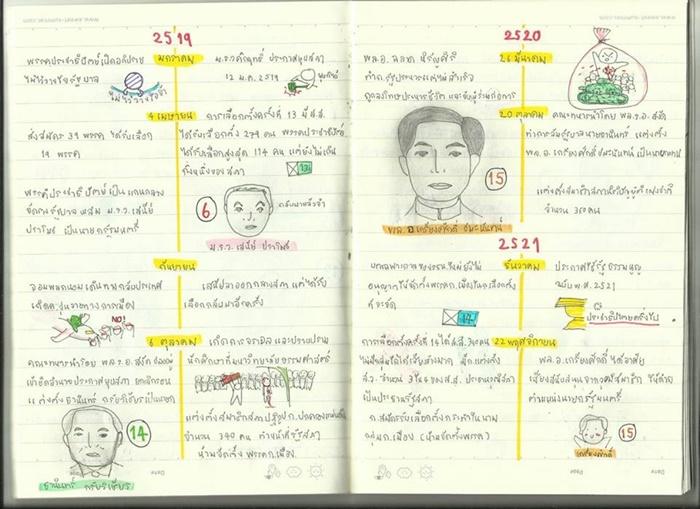 2519
มกราคม
พรรคประชาธิปัตย์เปิดอภิปราย
ไม่ไว้วางใจรัฐบาล
ไม่ไว้วางใจจ้า
ม.ร.ว.คึกฤทธิ์ ประกาศยุบสภา
12 ม.ค. 2519
4 เมษายน
การเลือกตั้งครั้งที่ 13 มี ส.ส.
ได้รับเลือกตั้ง 279 คน พรรคประชาธิปัตย์
ได้รับเลือกสูงสุด 114 คน แต่ยังไม่เกิน
กึ่งหนึ่งของสภา
ส่งสมัคร 39 พรรค ได้รับเลือก
19 พรรค
พรรคประชาธิปัตย์ เป็นแกนกลาง
จัดตั้งรัฐบาลผสม ม.ร.ว. เสนีย์
ปราโมช เป็นนายกรัฐมนตรี
6
กลับมาแล้วจ้า
ม.ร.ว. เสนีย์ ปราโมช
กันยายน
จอมพลถนอมเดินทางกลับประเทศ
NO!
เสนีย์ลาออกกลางสภา แต่ได้รับ
เลือกกลับมาอีกครั้ง
6 ตุลาคม
คณะทหารนำโดย พล.ร.อ. สงัด ชลออยู่
แต่งตั้ง ธานินทร์ กรัยวิเชียรเป็นนายก
14
ธานินทร์ กรัยวิเชียร
เกิดการจลาจล และปราบปราม
นักศึกษาที่มหาวิทยาลัยธรรมศาสตร์
แต่งตั้งสมาชิกสภาปฏิรูปการปกครองแผ่นดิน
จำนวน 340 คน ทำหน้าที่รัฐสภา
ห้ามจัดตั้ง พรรคก.เมือง
2520
26 มีนาคม
พล.อ. ฉลาด หิรัญศิริ
ทำการรัฐประหารแต่ไม่สำเร็จ
ถูกลงโทษประหารชีวิต และจับผู้ร่วมก่อการ
20 ตุลาคม
คณะทหารนำโดย พล.ร.อ. สงัด
ทำการล้มรัฐบาลนายธานินทร์ แต่งตั้ง
พล.อ. เกรียงศักดิ์ ชมะนันทน์ เป็นนายกแทน
แต่งตั้งสมาชิกสภานิติบัญญัติแห่งชาติ
จำนวน 360 คน
15
พล.อ. เกรียงศักดิ์ ชมะนันทน์
2521
ธันวาคม
ประกาศใช้รัฐธรรมนูญ
ฉบับ พ.ศ. 2521
ประชาธิปไตยครึ่งใบ
22 พฤศจิกายน
พล.อ. เกรียงศักดิ์ ได้อาศัย
เสียงสนับสนุนจากวุฒิสมาชิก ให้ดำรง
ตำแหน่งนายกรัฐมนตรี
15
เกรียงศักดิ์
เป็นประธานรัฐสภา
Date
Page
Date
Page